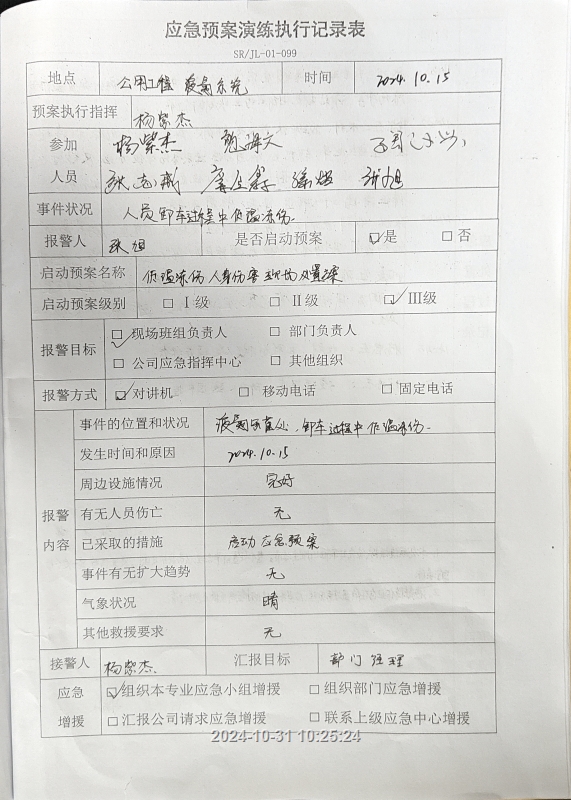 应急预案演练执行记录表
SR/JL-01-099
地点 公用工程 液氮系统 时间 2024.10.15
预案执行指挥 杨紫杰
参加 杨紫杰
人员 张志威 张旭
事件状况 人员卸车过程中低温冻伤.
报警人 张旭 是否启动预案 ☑是 □否
启动预案名称 低温冻伤人身伤害现场处置案
启动预案级别 □Ⅰ级 □Ⅱ级 ☑Ⅲ级
报警目标 ☑现场班组负责人 □部门负责人
□公司应急指挥中心 □其他组织
报警方式 ☑对讲机 □移动电话 □固定电话
报警内容
事件的位置和状况 卸车过程中低温冻伤.
发生时间和原因 2024.10.15
周边设施情况 完好
有无人员伤亡 无
已采取的措施 启动应急预案
事件有无扩大趋势 无
气象状况 晴
其他救援要求 无
接警人 杨紫杰. 汇报目标 部门经理
应急 ☑组织本专业应急小组增援 □组织部门应急增援
增援 □汇报公司请求应急增援 □联系上级应急中心增援
2024-10-31 10:25:24